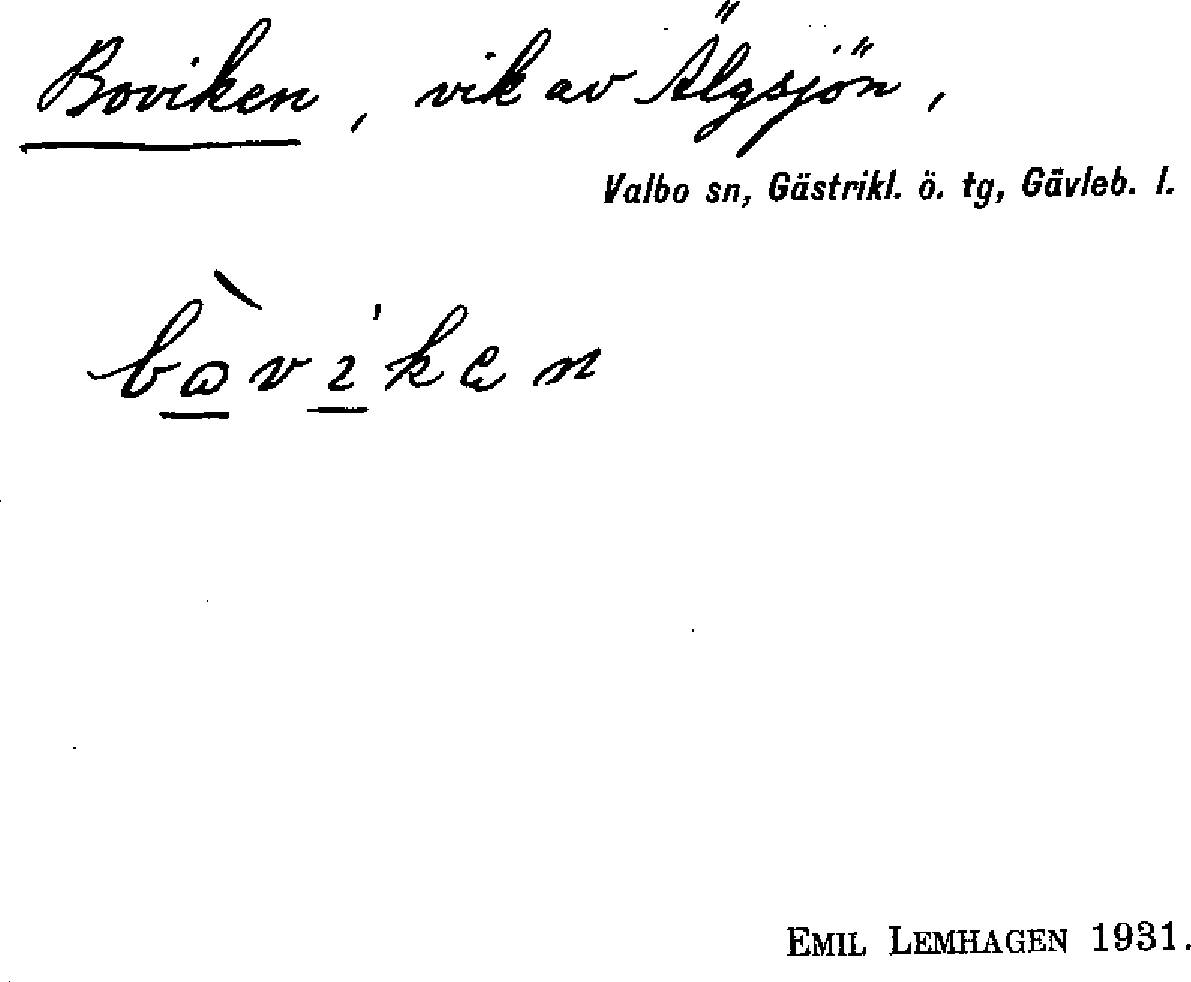 Boviken, vik av Älgsjön,
Valbo sn, Gästrikl. ö. tg, Gävleb. l.
bòvikən
EMIL LEMHAGEN 1931.